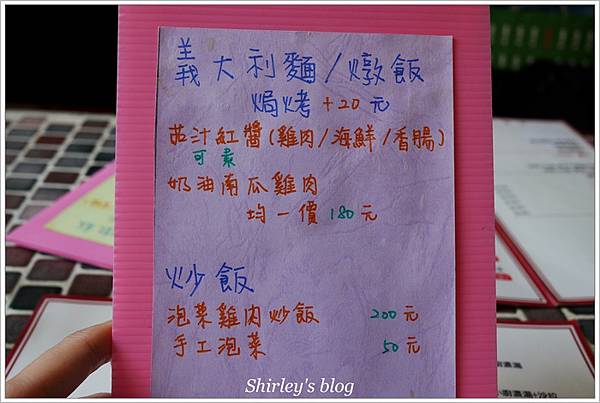 義大利麵/燉飯
焗烤+20元
茄汁紅醬(雞肉/海鮮/香腸)
可素
奶油南瓜雞肉
均一價180元
炒飯
泡菜雞肉炒飯 200元
手工泡菜 50元
Shirley's blog